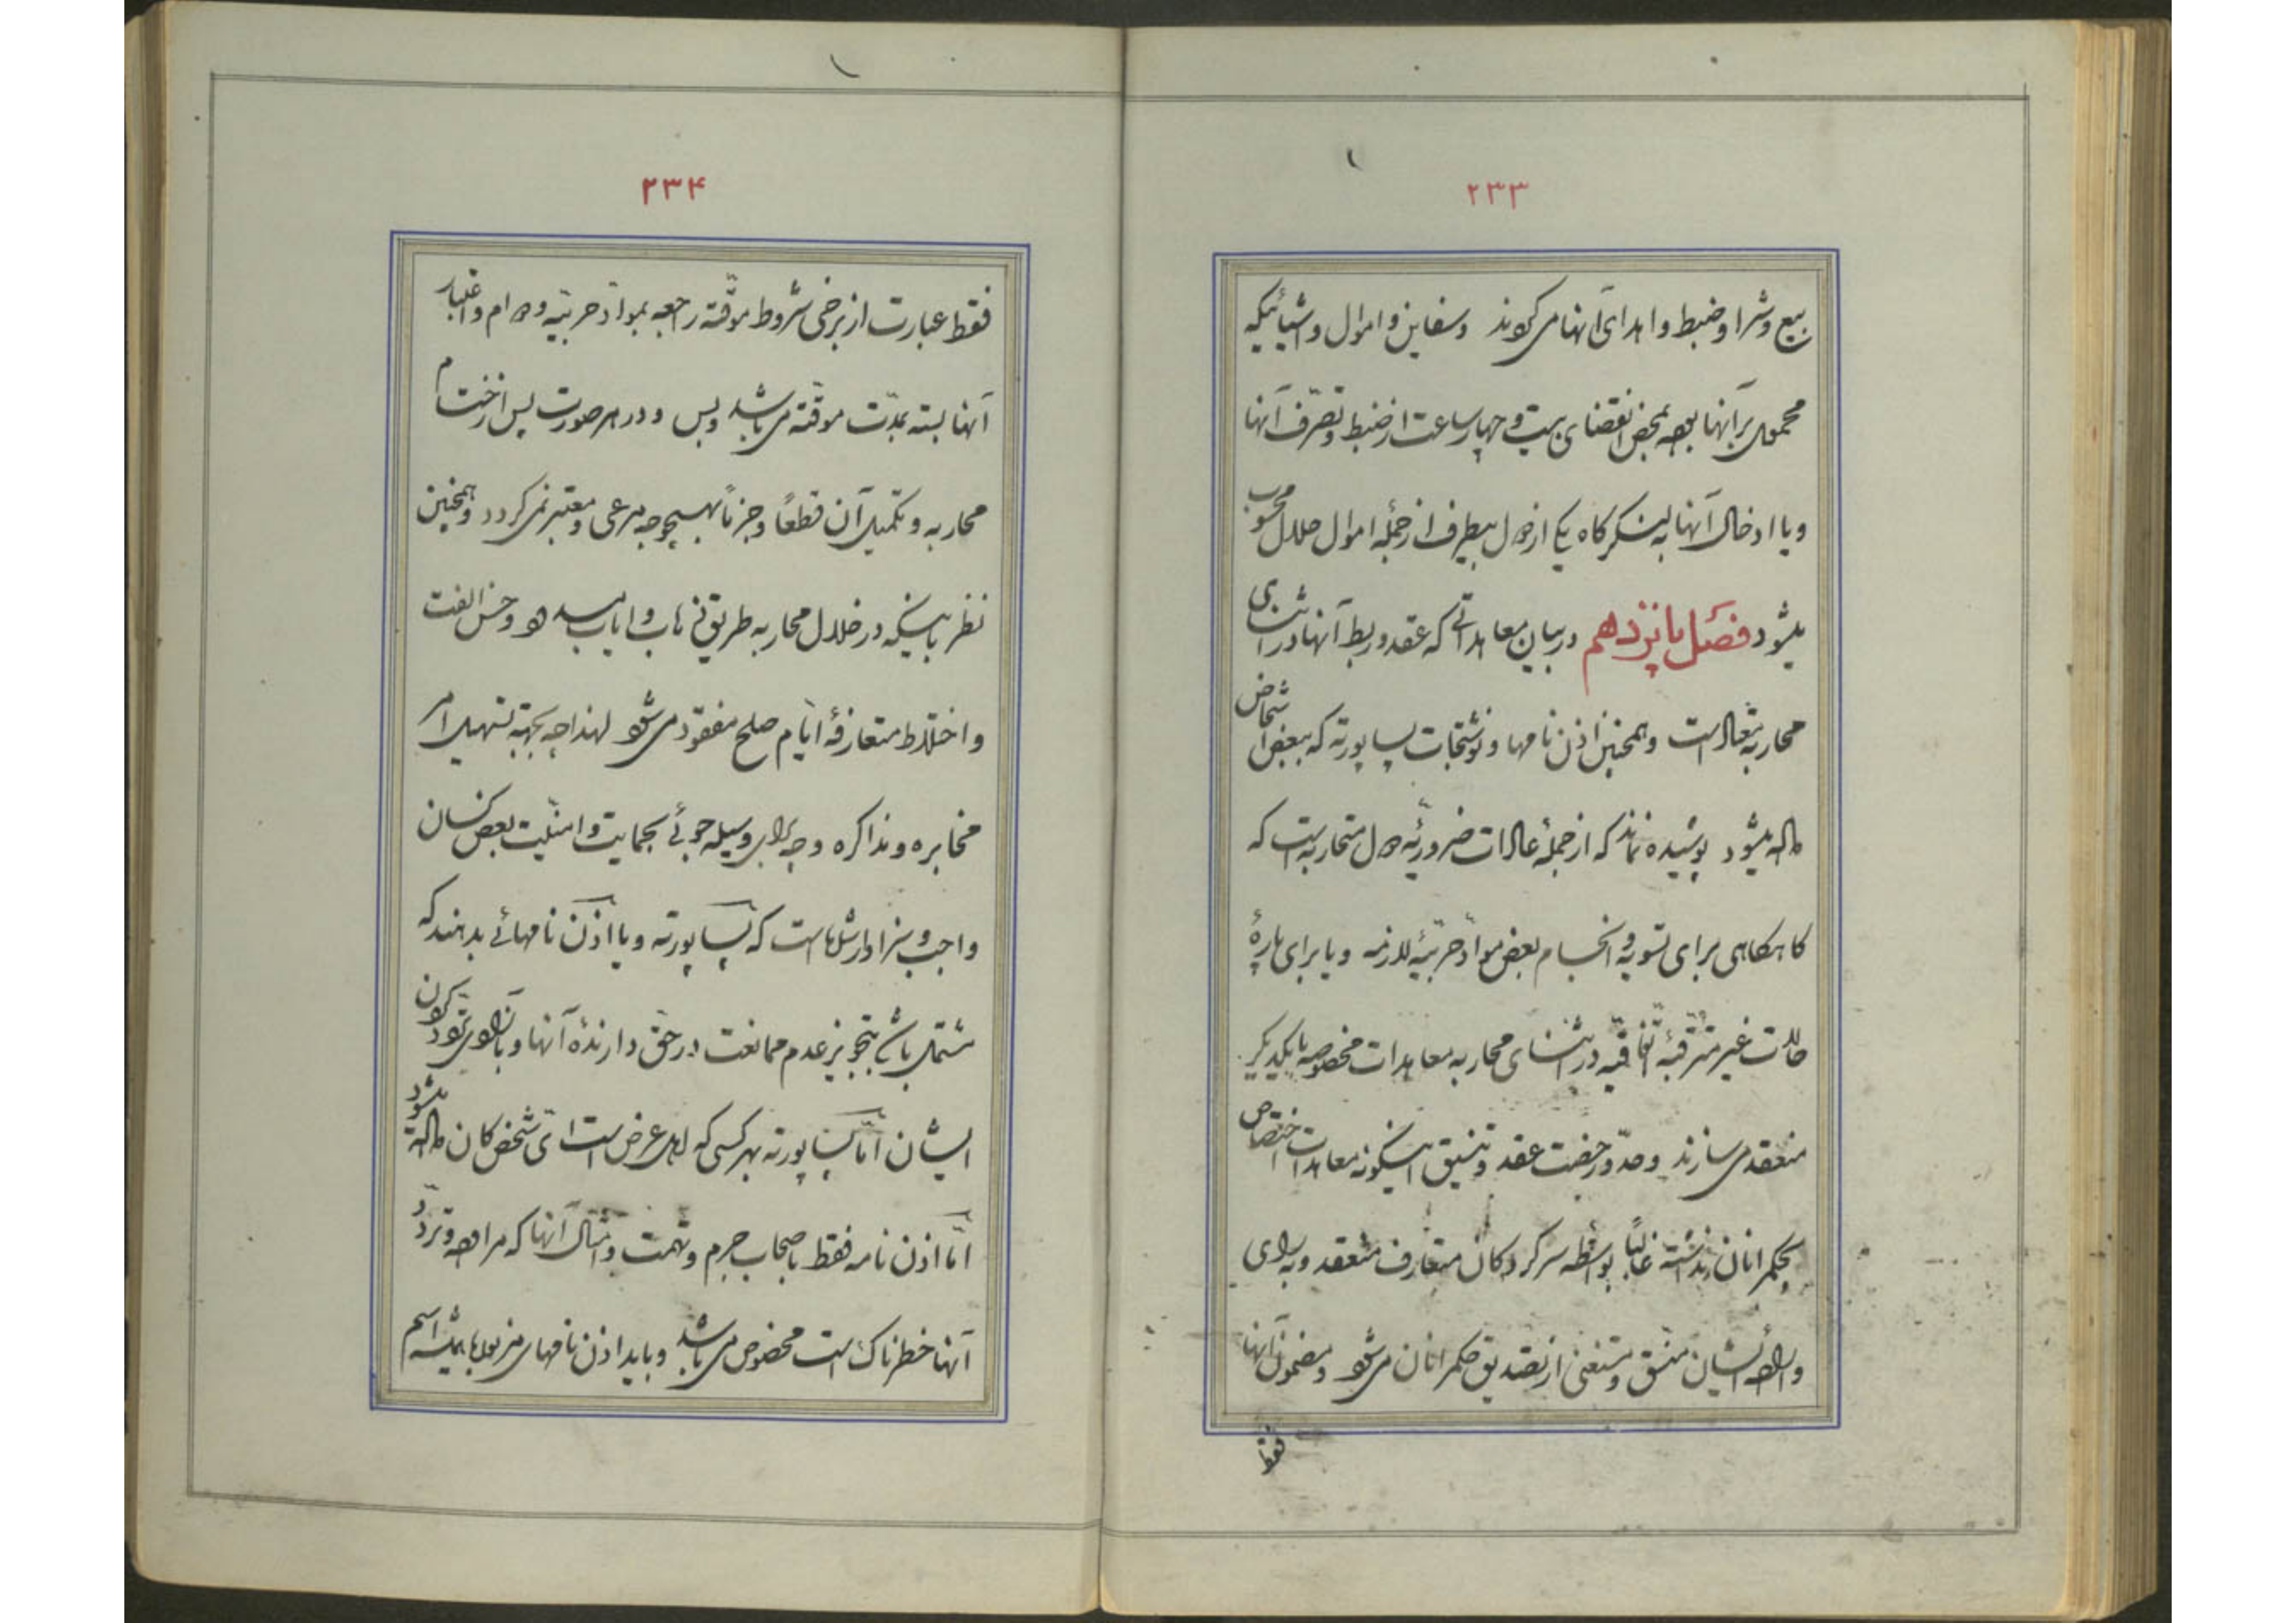 ۲۳۳
بیع و شرا و ضبط و اهدای آنها می‌کوند و سفاین و اموال و اشیائیکه
محمول برآنها بوده بمحض انقضای بیست و چهار ساعت از ضبط و تصرّف آنها
و یا ادخال آنها به لشکرکاه یکی از دول بیطرف از جملهٔ اموال حلال محسوب
میشود فصل پانزدهم در بیان معاهداتی که عقد و ربط آنها در اثنای
محاربه متعالست و همچنین اذن نامها و نوشتجات پساپورته که ببعض اشخاص
داده میشود پوشیده نماند که از جملهٔ عادات ضروریّهٔ دول متحاربه است که
کاهکاهی برای تسویه و انحسام بعض موادّ حربیّهٔ لازمه و یا برای پارهٔ
حالات غیر مترقبهٔ اتّفاقیّه در اثنای محاربه معاهدات مخصوصه با یکدیکر
منعقد می‌سازند و حدّ و رخصت عقد و تنسیق اینکونه معاهدات اختصاص
بحکمرانان نداشته غالباً بواسطه سرکردکان متعارف منعقد و به رای
و ارادهٔ ایشان منسّق و مستغنی از تصدیق حکمرانان می‌شود و مضمون آنها
فقط
۲۳۴
فقط عبارت از برخی شروط موقّته راجعه بموادّ حربیّه و دوام و اعتبار
آنها بسته بمدّت موقّته می‌باشد و بس و در هر صورت پس از اختتام
محاربه و تکمیل آن قطعاً و جزماً بهیچوجه مرعی و معتبر نمی‌کردد و همچنین
نظر باینکه در خلال محاربه طریق ذهاب و ایاب مسدود و حسن الفت
و اختلاط متعارفهٔ ایّام صلح مفقود می‌شود لهذا چه بجهة تسهیل امر
مخابره و مذاکره و چه برای وسیله جوئی بحمایت و امنیّت بعض کسان
واجب و سزاوار شماست که پساپورته و یا اذن نامهائی بدهند که
مشتمل باشد بتجویز عدم ممانعت در حقّ دارندهٔ آنها و بآزادی تردّد کردن
ایشان امّا پساپورته بهر کسی که اهل عرض است ایّ شخص کان داده میشود
امّا اذن نامه فقط باصحاب جرم و تهمت و امثال آنها که مراوده و تردّد
آنها خطرناک است مخصوص می‌باشد و باید اذن نامهای مزبورها همیشه اسم